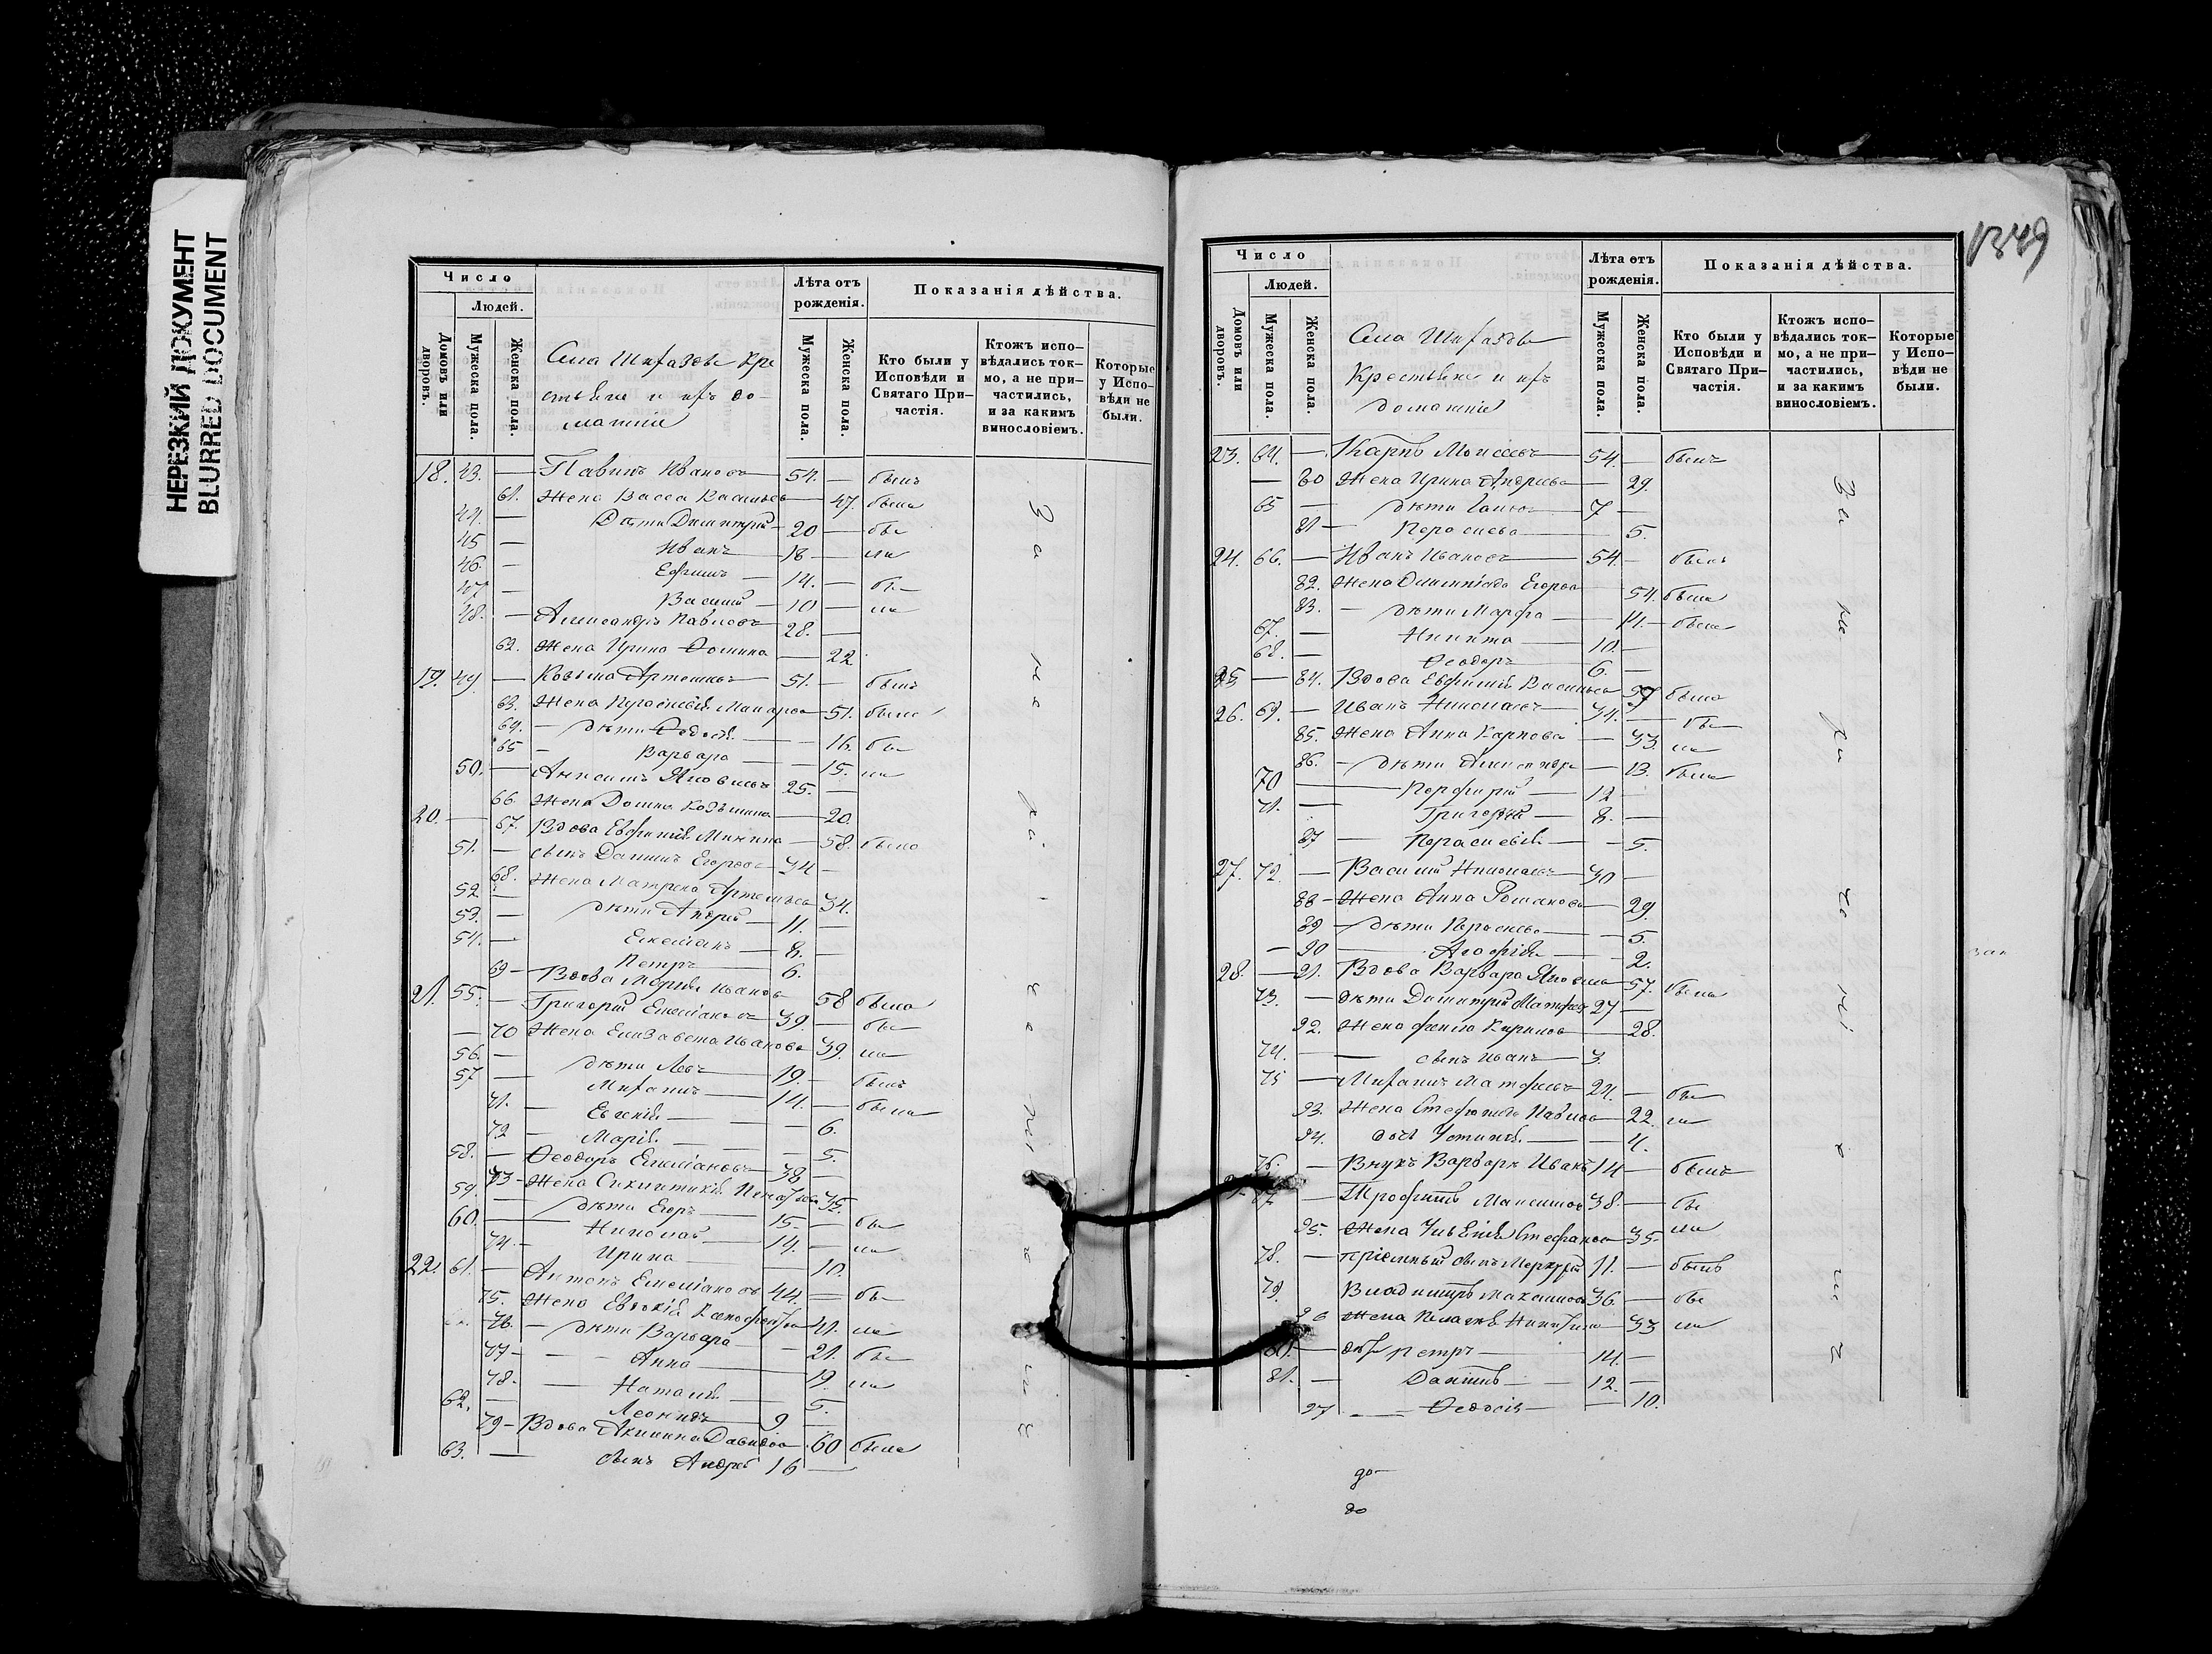 НЕРЕЗКИЙ ДОКУМЕНТ
BLURRED DOCUMENT
Число
Людей.
Домовъ или дворовъ.
Мужеска пола.
Женска пола.
Села
Кре
стьяне и ихъ до-
машніе
Лѣта отъ рожденія.
Мужеска пола.
Женска пола.
Показанія дѣйства.
Кто были у Исповѣди и Святаго При-частія.
Ктожъ испо-вѣдались ток-мо, а не при-частились, и за какимъ винословіемъ.
Которые у Испо-вѣди не были.
18. 43. — Ивановъ 54. — былъ
61. Жена Васса Васильева — 47. была
44. — Дѣти Димитрій 20 — бы
45 — Иванъ 18 — ли
46. — Ефимъ 14. — бы
47 — Василій 10 — ли
48. — Александръ Павловъ 28. —
62. Жена Ирина Фомина — 22.
19. 49. — Козьма Артемьевъ 51. — былъ
63. Жена Параскевія Макарова — 51. была
64. — дѣти Ѳедосія — 16. бы
65 — Варвара — 15. ли
50. — Яковлевъ 25. —
66. Жена Домна Козьмина — 20.
20. — 67. Вдова Евфимія Минина — 58. была
51. — сынъ Даніилъ Егоровъ 34 —
68. Жена Матрена Артемьева 34.
52. — дѣти Андрей 11. —
53. — Емеліанъ 8. —
54. — Петръ 6.
69 — Вдова Марія Иванова 58 была
21. 55. — Григорій Емеліановъ 39. — бы
— 70 Жена Елизавета Иванова 39. ли
56. — дѣти Левъ 19. — былъ
57 — 14. — были
71. — Евгенія — 6.
72 — Марія — 5.
58. — Ѳеодоръ Емеліановъ 38 —
73 — Жена Синклитикія 35.
59. — дѣти Егоръ 15. — бы
60. — Николай 14. — ли
74. — Ирина — 10.
22. 61. — Антонъ Емеліановъ 44. — бы
75. Жена Евдокія 41. ли
76. — дѣти Варвара — 21. бы
77 — Анна — 19. ли
78. — Наталія — 5.
62. — Леонидъ 9 —
79 — Вдова Акилина Давидова 60 была
63. — сынъ Андрей 16 —
За не ... че ні е
1349
Число
Людей.
Домовъ или дворовъ.
Мужеска пола.
Женска пола.
Села
Крестьяне и ихъ
домашніе
Лѣта отъ рожденія.
Мужеска пола.
Женска пола.
Показанія дѣйства.
Кто были у Исповѣди и Святаго При-частія.
Ктожъ испо-вѣдались ток-мо, а не при-частились, и за какимъ винословіемъ.
Которые у Испо-вѣди не были.
23. 64. — Карпъ Моисеевъ 54. — былъ
— 80 Жена Ирина Андреева — 29.
65 — дѣти 7 —
81 — Парасковья — 5.
24. 66. — Иванъ Ивановъ 54. — былъ
82. Жена Олимпіада Егорова 54. была
83. — дѣти Марѳа — 14. — была
67. — Никита 10. —
68. — Ѳеодоръ 6. —
25 — 84. Вдова Евфимія Васильева 57 была
26. 69. — Иванъ Николаевъ 34. — бы
85. Жена Анна Карпова — 33. ли
86. — дѣти Александра — 13. была
70 — Порфирій 12 —
71. — Григорій 8. —
87 — Параскевія — 5.
27. 72. — Василій Николаевъ 30 —
88 — Жена Анна Романова — 29.
89 — дѣти Парасковья — 5.
— 90 — Агафія — 2.
28. — 91. Вдова Варвара Яковлева 57. была
73. — дѣти Димитрій 27 —
92. Жена Кирилова — 28.
74. — сынъ Иванъ 3.
75 — 24. — бы
93. Жена Стефанида Павлова 22. ли
94. дочь Устинія — 4.
76. — Внукъ Варвары Иванъ 14 — былъ
77 — Трофимъ Максимовъ 38. — бы
95. Жена Стефанова 35. ли
78. — пріемный сынъ Меркурій 11. — былъ
79. Владиміръ Максимовъ 36. — бы
96 Жена Пелагія 33 ли
80. — Петръ 14. —
81. — Даніилъ 12. —
97 — Ѳеодосія — 10.
до
до